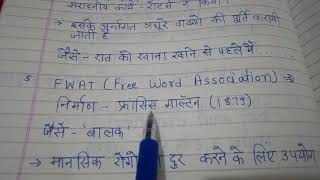 सराहनीय कार्य - रोटर्स ने किया।
→ इसके अन्तर्गत अधूरे वाक्यों की पूर्ति करायी
जाती है
जैसे - रात को खाना खाने से पहले मैं...
5 FWAT (Free Word Association) →
निर्माण - फ्रांसिस गाल्टन (1879)
जैसे - "बालक"
→ मानसिक रोगों दुर करने के लिए उपयोग